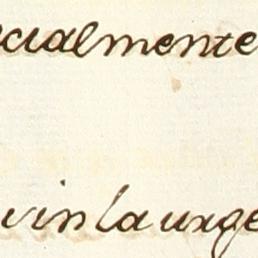 cialmente
vin la urge